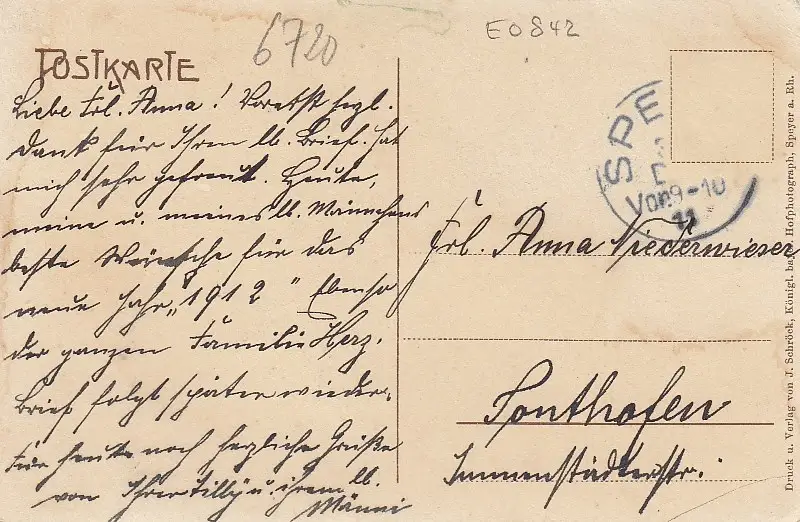 6720
E0842
POSTKARTE
Liebe Frl. Anna! Vorerst hzgl.
Dank für Ihren lb. Brief. Hat
mich sehr gefreut. Heute,
meine u. meines lb. Männchens
beste Wünsche für das
neue Jahr „1912" Ebenso
der ganzen Familie Herz.
Brief folgt später wieder.
Für heute noch herzliche Grüße
von Ihrer Tilly u. ihrem lb.
Männi
SPE
Vor 9-10
11
Frl. Anna Niederwieser
Sonthofen
Immenstädterstr.
Druck u. Verlag von J. Schröck, Königl. bayr. Hofphotograph, Speyer a. Rh.